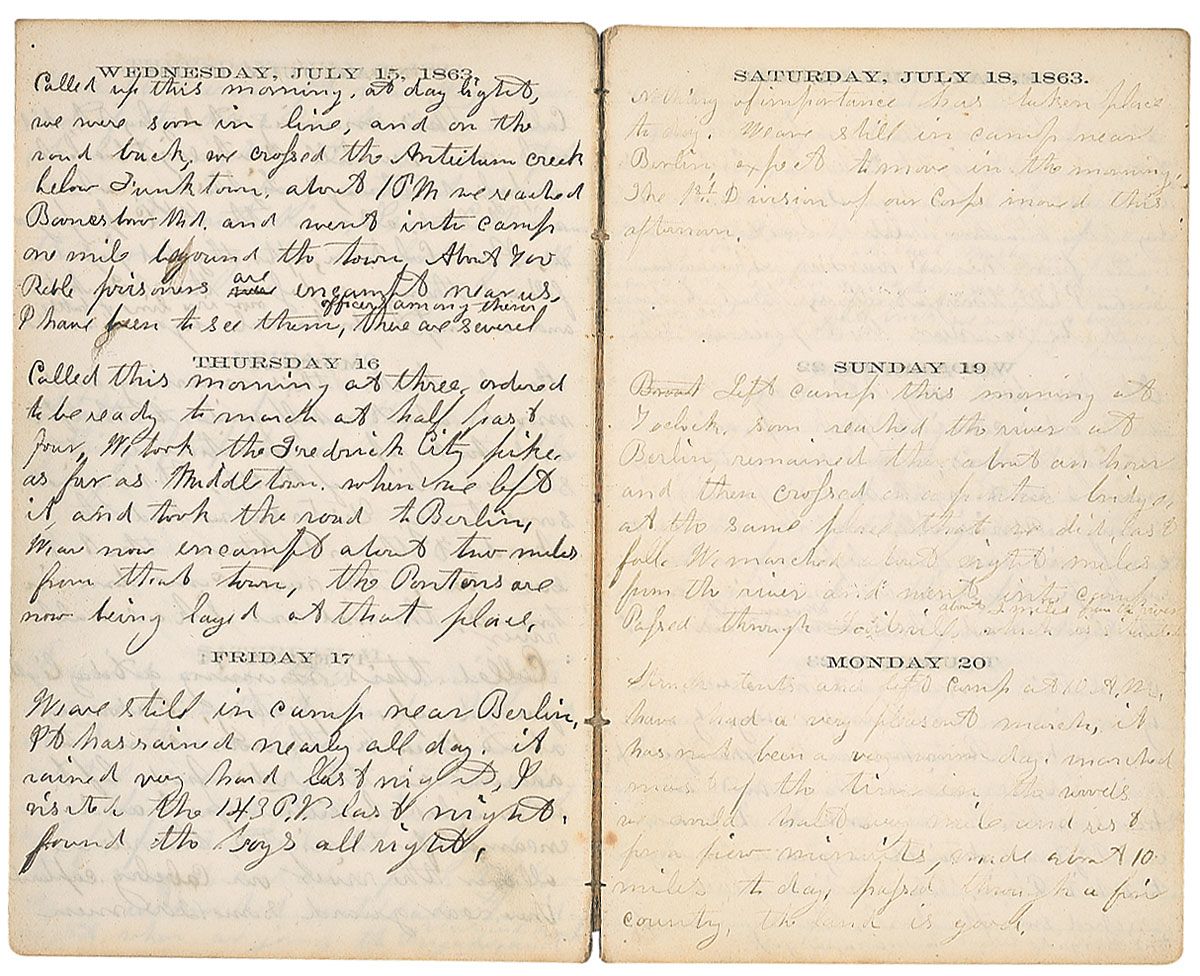 WEDNESDAY, JULY 15, 1863.
Called up this morning, at day light,
we were soon in line, and on the
road back, we crossed the Antietum creek
below Funktown, about 1 PM we reached
Md. and went into camp
one mile beyound the town. About 700
Reble prisoners are encampt near us,
I have been to see them, there are several
officers among them
THURSDAY 16
Called this morning at three, ordered
to be ready to march at half past
four, We took the Fredrick City pike
as far as Middletown. when we left
it, and took the road to Berlin,
We are now encampt about two miles
from that town, the Pontons are
now being layed at that place,
FRIDAY 17
We are still in camp near Berlin,
It has rained nearly all day. it
rained very hard last night, I
visited the 143 P.V. last night.
found the boys all right,
SATURDAY, JULY 18, 1863.
Nothing of importance has taken place
to day. We are still in camp near
Berlin, expect to move in the morning,
The 1st Division of our Corps moved this
afternoon.
SUNDAY 19
Left camp this morning at
7 oclock, soon reached the river at
Berlin, remained there about an hour
and then crossed on a bridge,
at the same place that we did last
fall. We marched about eight miles
from the river and went into camp
about 2 miles from the river
Passed through which is
MONDAY 20
Struck tents and left camp at 10 A.M.,
have had a very pleasent march, it
has not been a very warm day. marched
most of the time in the woods
we would halt every mile and rest
for a few minuits, made about 10
miles to day, passed through a fine
county, the land is good.